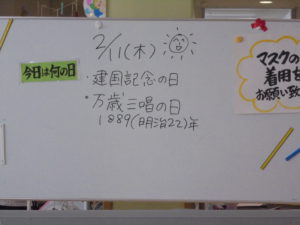 2/11(木)
今日は何の日
・建国記念の日
・万歳三唱の日
1889(明治22)年
マスクの
着用を
お願い致